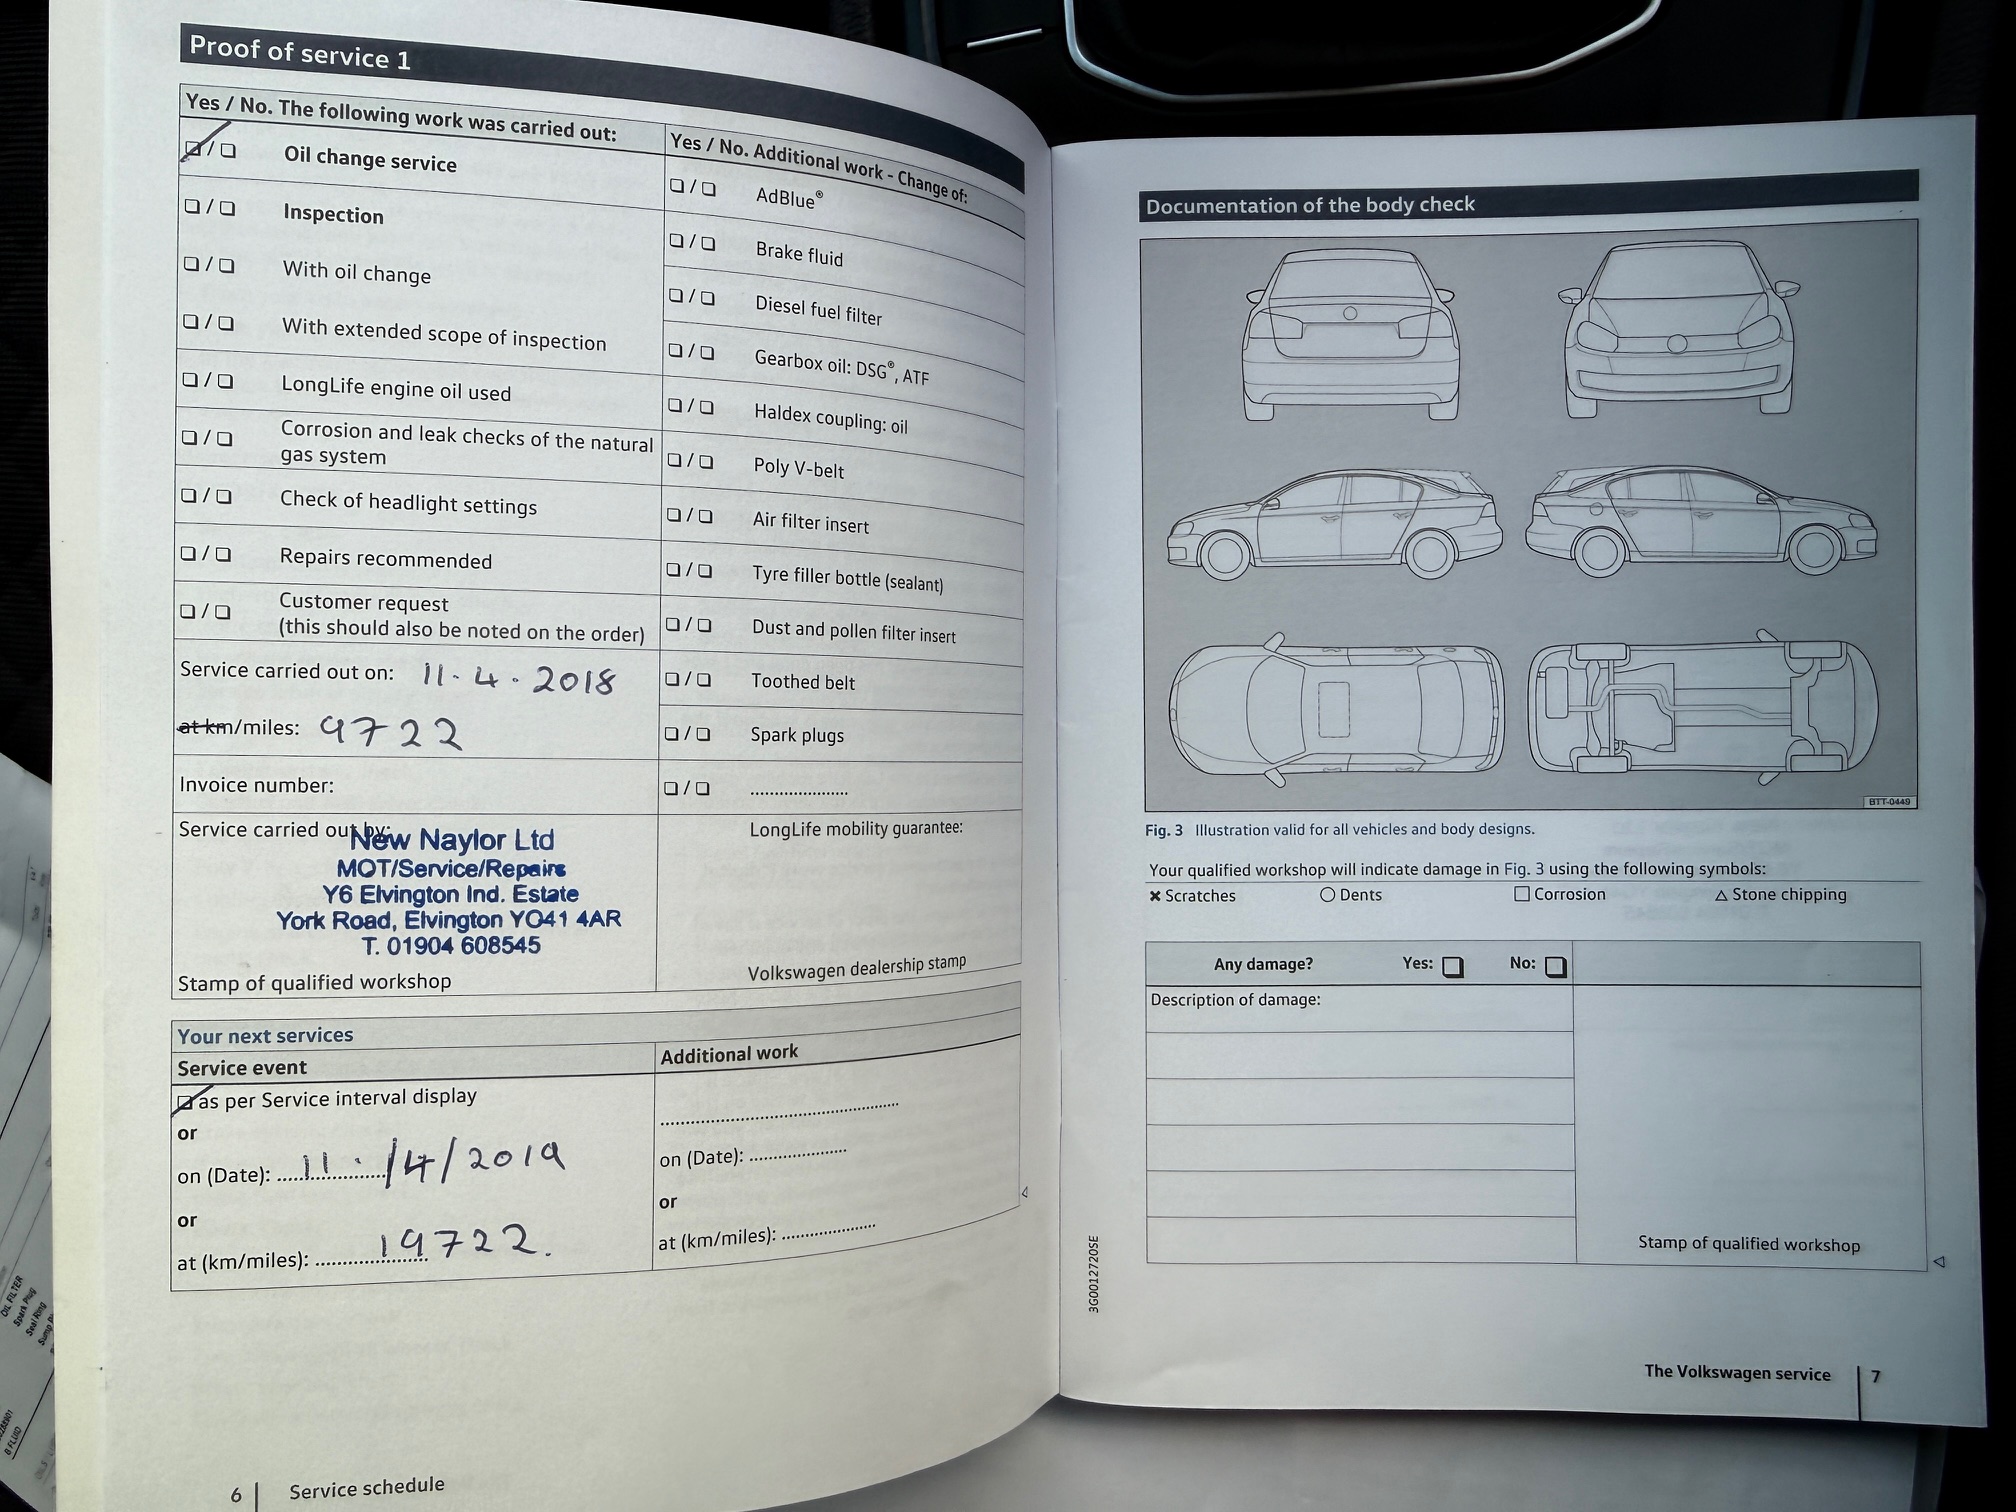 Proof of service 1
Yes / No. The following work was carried out:
❏ / ❏ Oil change service
❏ / ❏ Inspection
❏ / ❏ With oil change
❏ / ❏ With extended scope of inspection
❏ / ❏ LongLife engine oil used
❏ / ❏ Corrosion and leak checks of the natural
gas system
❏ / ❏ Check of headlight settings
❏ / ❏ Repairs recommended
❏ / ❏ Customer request
(this should also be noted on the order)
Service carried out on: 11.4.2018
at km/miles: 9722
Invoice number:
Service carried out by:
New Naylor Ltd
MOT/Service/Repairs
Y6 Elvington Ind. Estate
York Road, Elvington YO41 4AR
T. 01904 608545
Stamp of qualified workshop
Yes / No. Additional work - Change of:
❏ / ❏ AdBlue®
❏ / ❏ Brake fluid
❏ / ❏ Diesel fuel filter
❏ / ❏ Gearbox oil: DSG®, ATF
❏ / ❏ Haldex coupling: oil
❏ / ❏ Poly V-belt
❏ / ❏ Air filter insert
❏ / ❏ Tyre filler bottle (sealant)
❏ / ❏ Dust and pollen filter insert
❏ / ❏ Toothed belt
❏ / ❏ Spark plugs
❏ / ❏ ....................
LongLife mobility guarantee:
Volkswagen dealership stamp
Your next services
Service event
❏ as per Service interval display
or
on (Date): 11./4/2019
or
at (km/miles): 19722.
Additional work
..................................................
on (Date): ....................
or
at (km/miles): ....................
6 | Service schedule
Documentation of the body check
BTT-0449
Fig. 3 Illustration valid for all vehicles and body designs.
Your qualified workshop will indicate damage in Fig. 3 using the following symbols:
✖ Scratches ○ Dents □ Corrosion △ Stone chipping
Any damage? Yes: ❏ No: ❏
Description of damage:
Stamp of qualified workshop
3G0012720SE
The Volkswagen service | 7
OIL FILTER
Spark Plug
Seal Ring